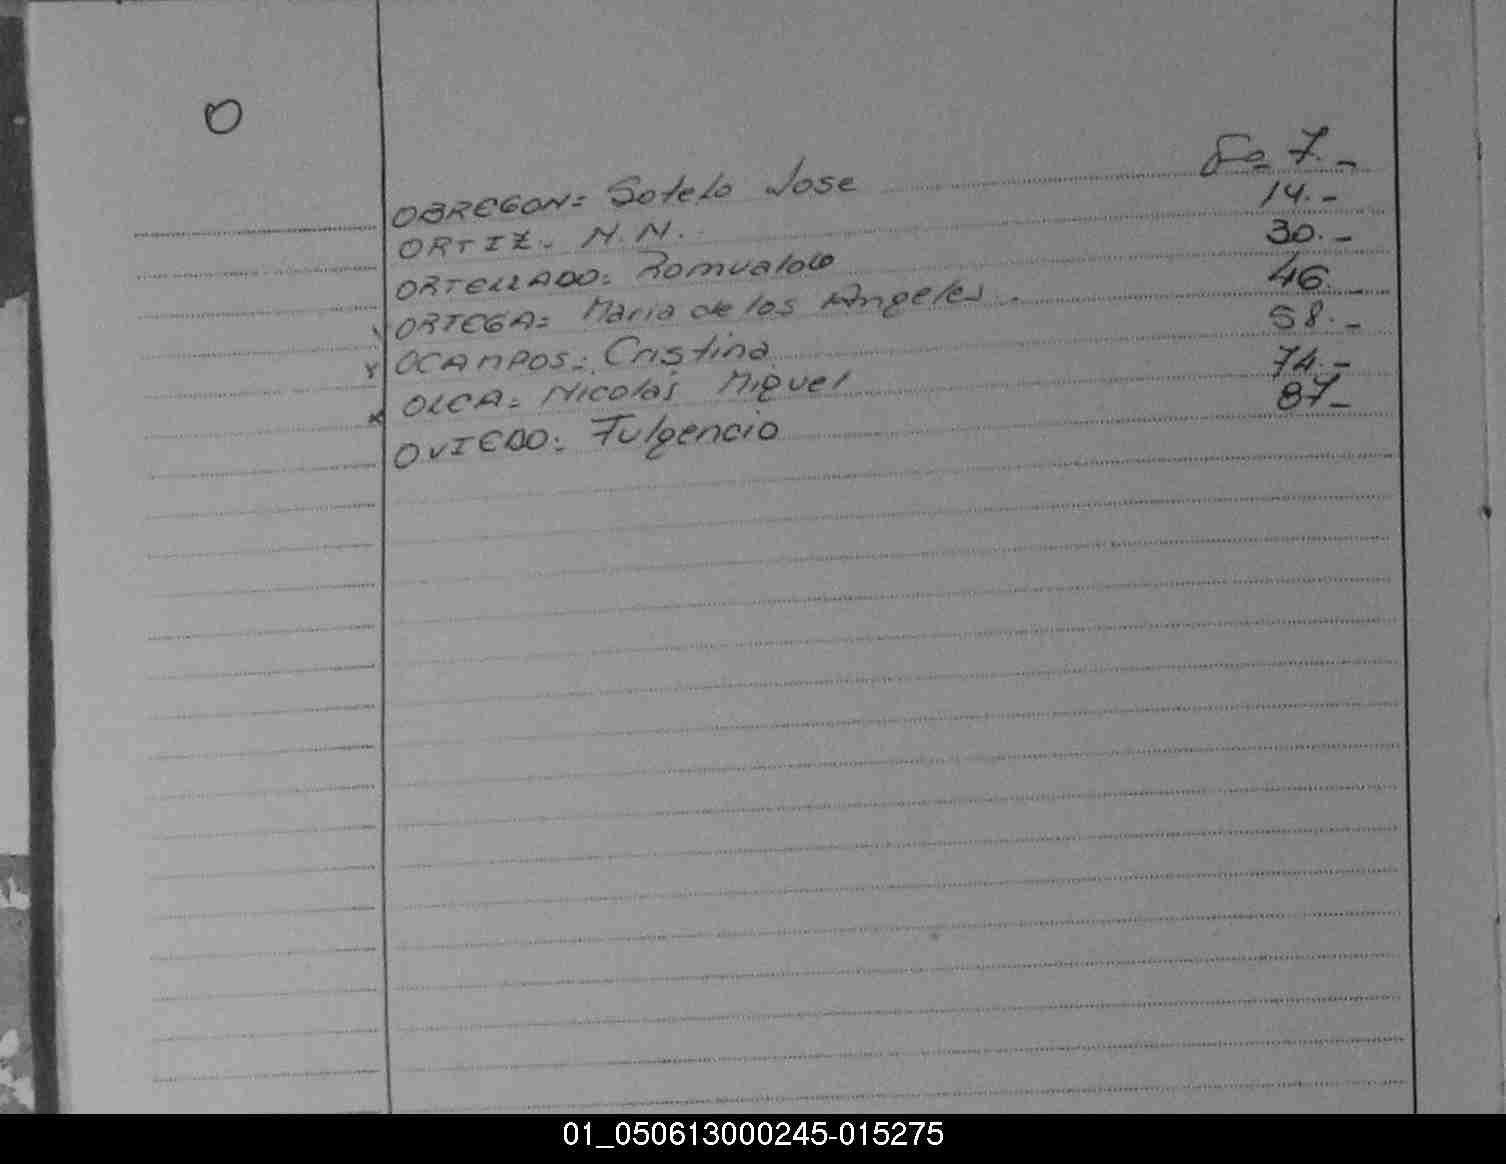 O
OBREGON= Sotelo Jose Fo 7.-
ORTIZ.- N.N. 14.-
ORTELLADO: Romualdo 30.-
ORTEGA= Maria de los Angeles. 46.-
OCAMPOS: Cristina 58.-
OLCA= Nicolás Miguel 74.-
OVIEDO: Fulgencio 87-
01_050613000245-015275